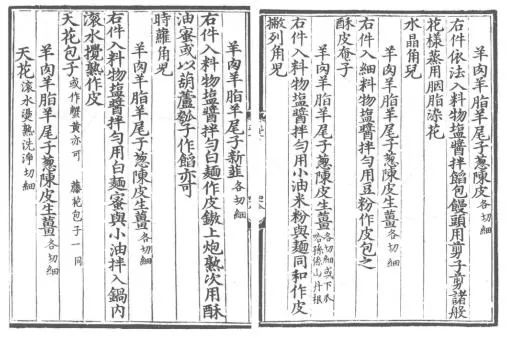 羊肉羊脂羊尾子葱陳皮生薑各切細
右件依法入料物塩醬拌餡包饅頭用剪子剪諸般
花樣蒸用胭脂染花
水晶角兒
羊肉羊脂羊尾子葱陳皮生薑各切細
右件入細料物塩醬拌勻用豆粉作皮包之
酥皮奄子
羊肉羊脂羊尾子葱陳皮生薑各切細或下瓜哈孫係山丹根
右件入料物塩醬拌勻用小油米粉與麵同和作皮
撇列角兒
羊肉羊脂羊尾子新韮各切細
右件入料物塩醬拌勻白麵作皮鏊上炮熟次用酥
油蜜或以葫蘆瓠子作餡亦可
時蘿角兒
羊肉羊脂羊尾子葱陳皮生薑各切細
右件入料物塩醬拌勻用白麵蜜與小油拌入鍋內
滾水攪熟作皮
天花包子或作蟹黃亦可藤花包子一同
羊肉羊脂羊尾子葱陳皮生薑各切細
天花滾水燙熟洗淨切細